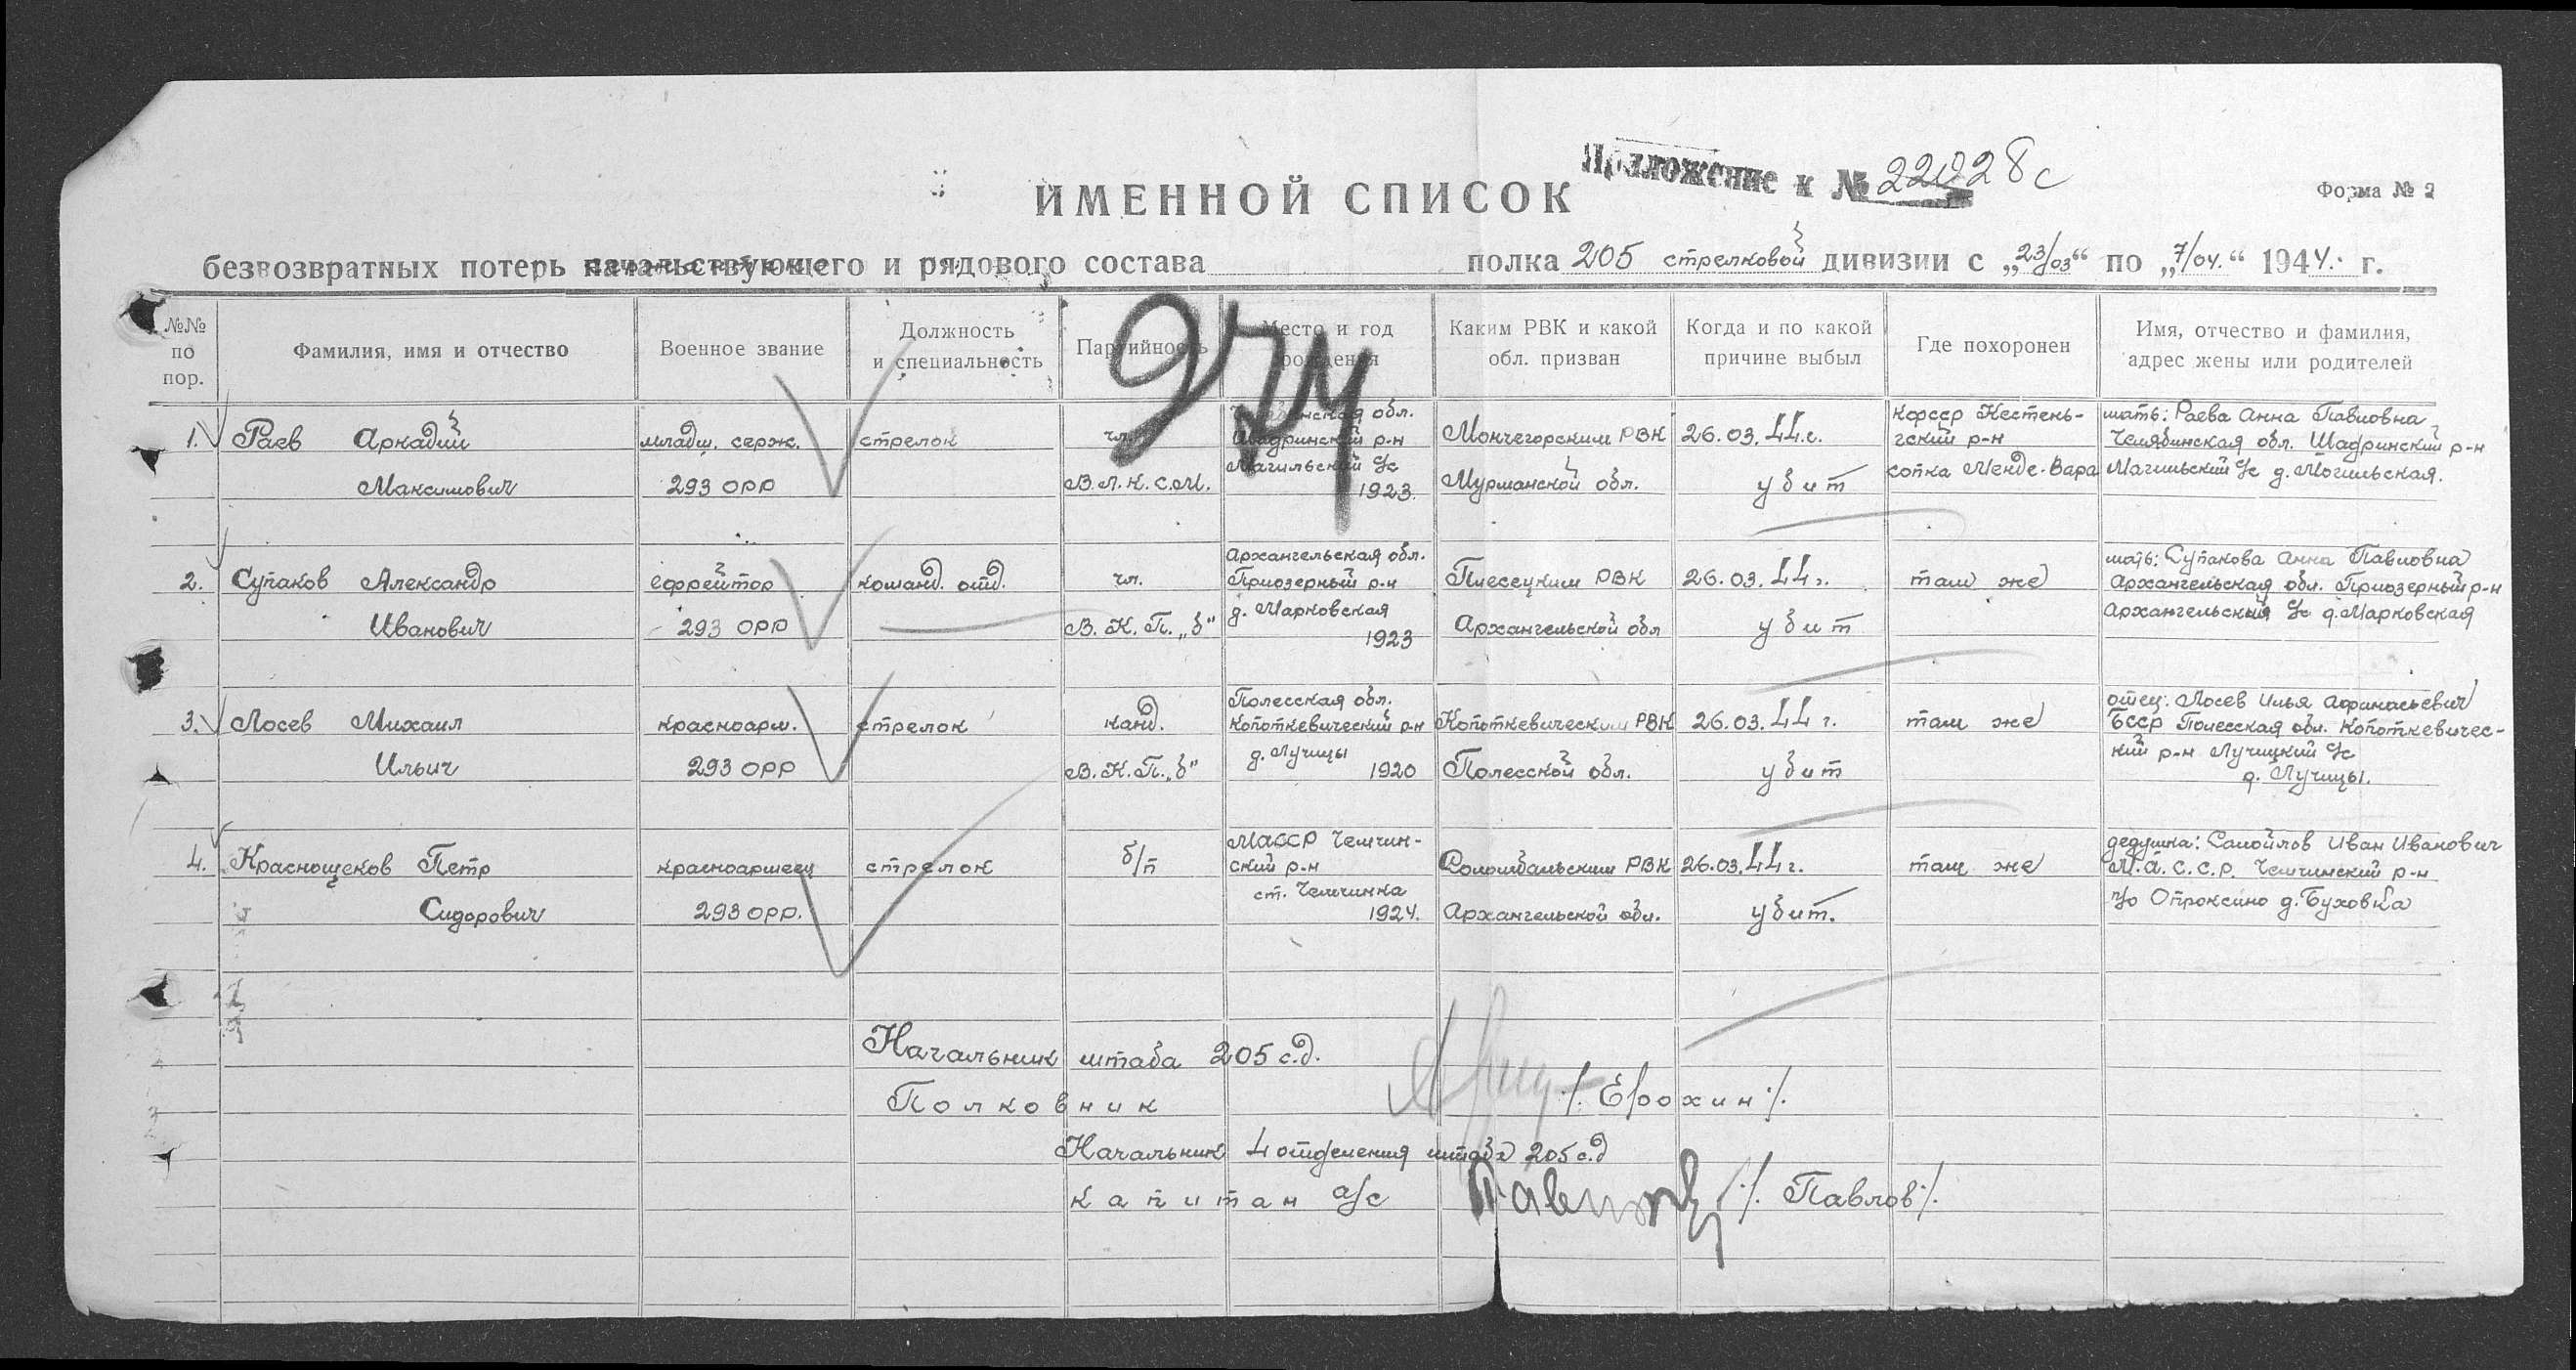 Приложение к № 22028с
ИМЕННОЙ СПИСОК
Форма № 2
безвозвратных потерь начальствующего и рядового состава полка 205 стрелковой дивизии с „23/03“ по „7/04.“ 1944. г.
№№ по пор.
Фамилия, имя и отчество
Военное звание
Должность и специальность
Партийность
Место и год рождения
Каким РВК и какой обл. призван
Когда и по какой причине выбыл
Где похоронен
Имя, отчество и фамилия, адрес жены или родителей
274
1. Раев Аркадий
Максимович
младш. серж.
293 ОРР
стрелок
чл.
В.Л.К.С.М.
обл.
Шадринский р-н
Магильский с/с
1923.
Мончегорским РВК
Мурманской обл.
26.03.44г.
убит
КФССР Кестень-
гский р-н
сопка Менде-Вара
мать: Раева Анна Павловна
Челябинская обл. Шадринский р-н
Магильский с/с д. Могильская.
2. Супаков Александр
Иванович
ефрейтор
293 ОРР
команд. отд.
чл.
В.К.П. „б“
Архангельская обл.
Приозерный р-н
д. Марковская
1923
Плесецким РВК
Архангельской обл
26.03.44г.
убит
там же
мать: Супакова Анна Павловна
Архангельская обл. Приозерный р-н
Архангельский с/с д. Марковская
3. Лосев Михаил
Ильич
красноарм.
293 ОРР
стрелок
канд.
В.К.П. „б“
Полесская обл.
Копоткевический р-н
д. Лучицы
1920
Копоткевическим РВК
Полесской обл.
26.03.44г.
убит
там же
отец: Лосев Илья Афанасьевич
БССР Полесская обл. Копоткевичес-
кий р-н Лучицкий с/с
д. Лучицы.
4. Краснощеков Петр
Сидорович
красноармеец
293 ОРР.
стрелок
б/п
МАССР Чемчин-
ский р-н
ст. Чемчинка
1924.
Соломбальским РВК
Архангельской обл.
26.03.44г.
убит.
там же
дедушка: Самойлов Иван Иванович
М.А.С.С.Р. Чемчинский р-н
п/о Опроксино д. Буховка
Начальник штаба 205 с.д.
Полковник /. Ерохин ./.
Начальник 4 отделения штаба 205 с.д
капитан а/с Павлов /. Павлов ./.